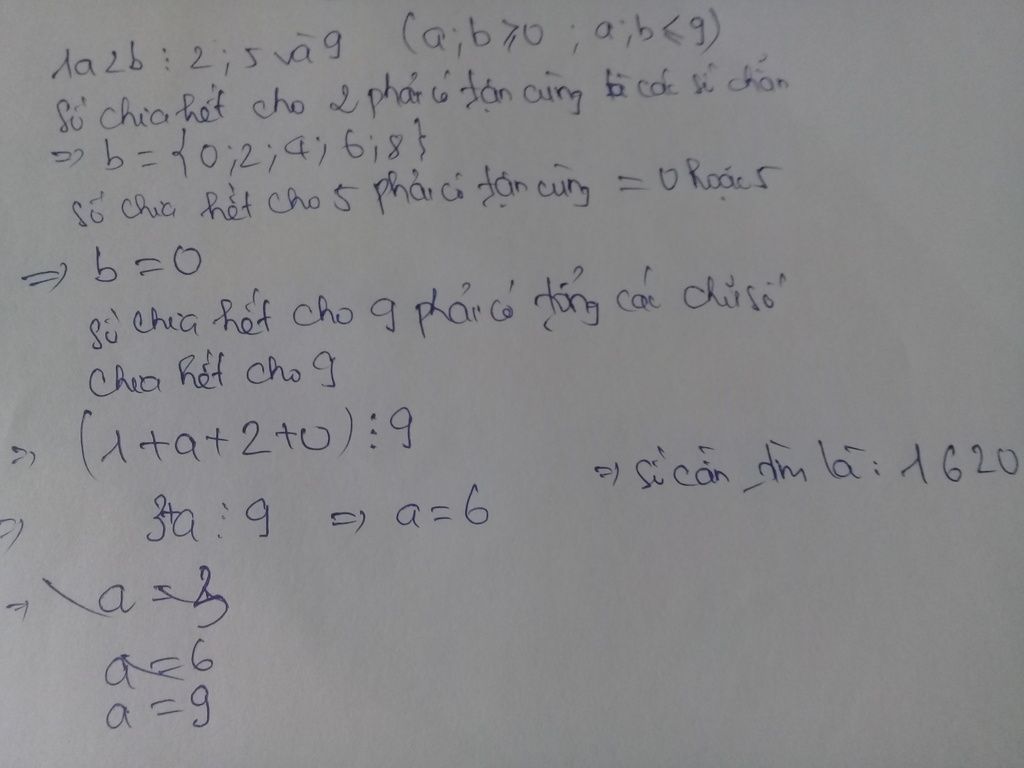 1a2b ⋮ 2 ; 5 và 9 (a;b ⩾ 0 ; a;b ⩽ 9)
Số chia hết cho 2 phải có tận cùng là các số chẵn
=> b = {0;2;4;6;8}
số chia hết cho 5 phải có tận cùng = 0 hoặc 5
=> b = 0
số chia hết cho 9 phải có tổng các chữ số
chia hết cho 9
=> (1+a+2+0) ⋮ 9
=> 3+a ⋮ 9 => a = 6
=> số cần tìm là : 1620
=> a =
a = 6
a = 9